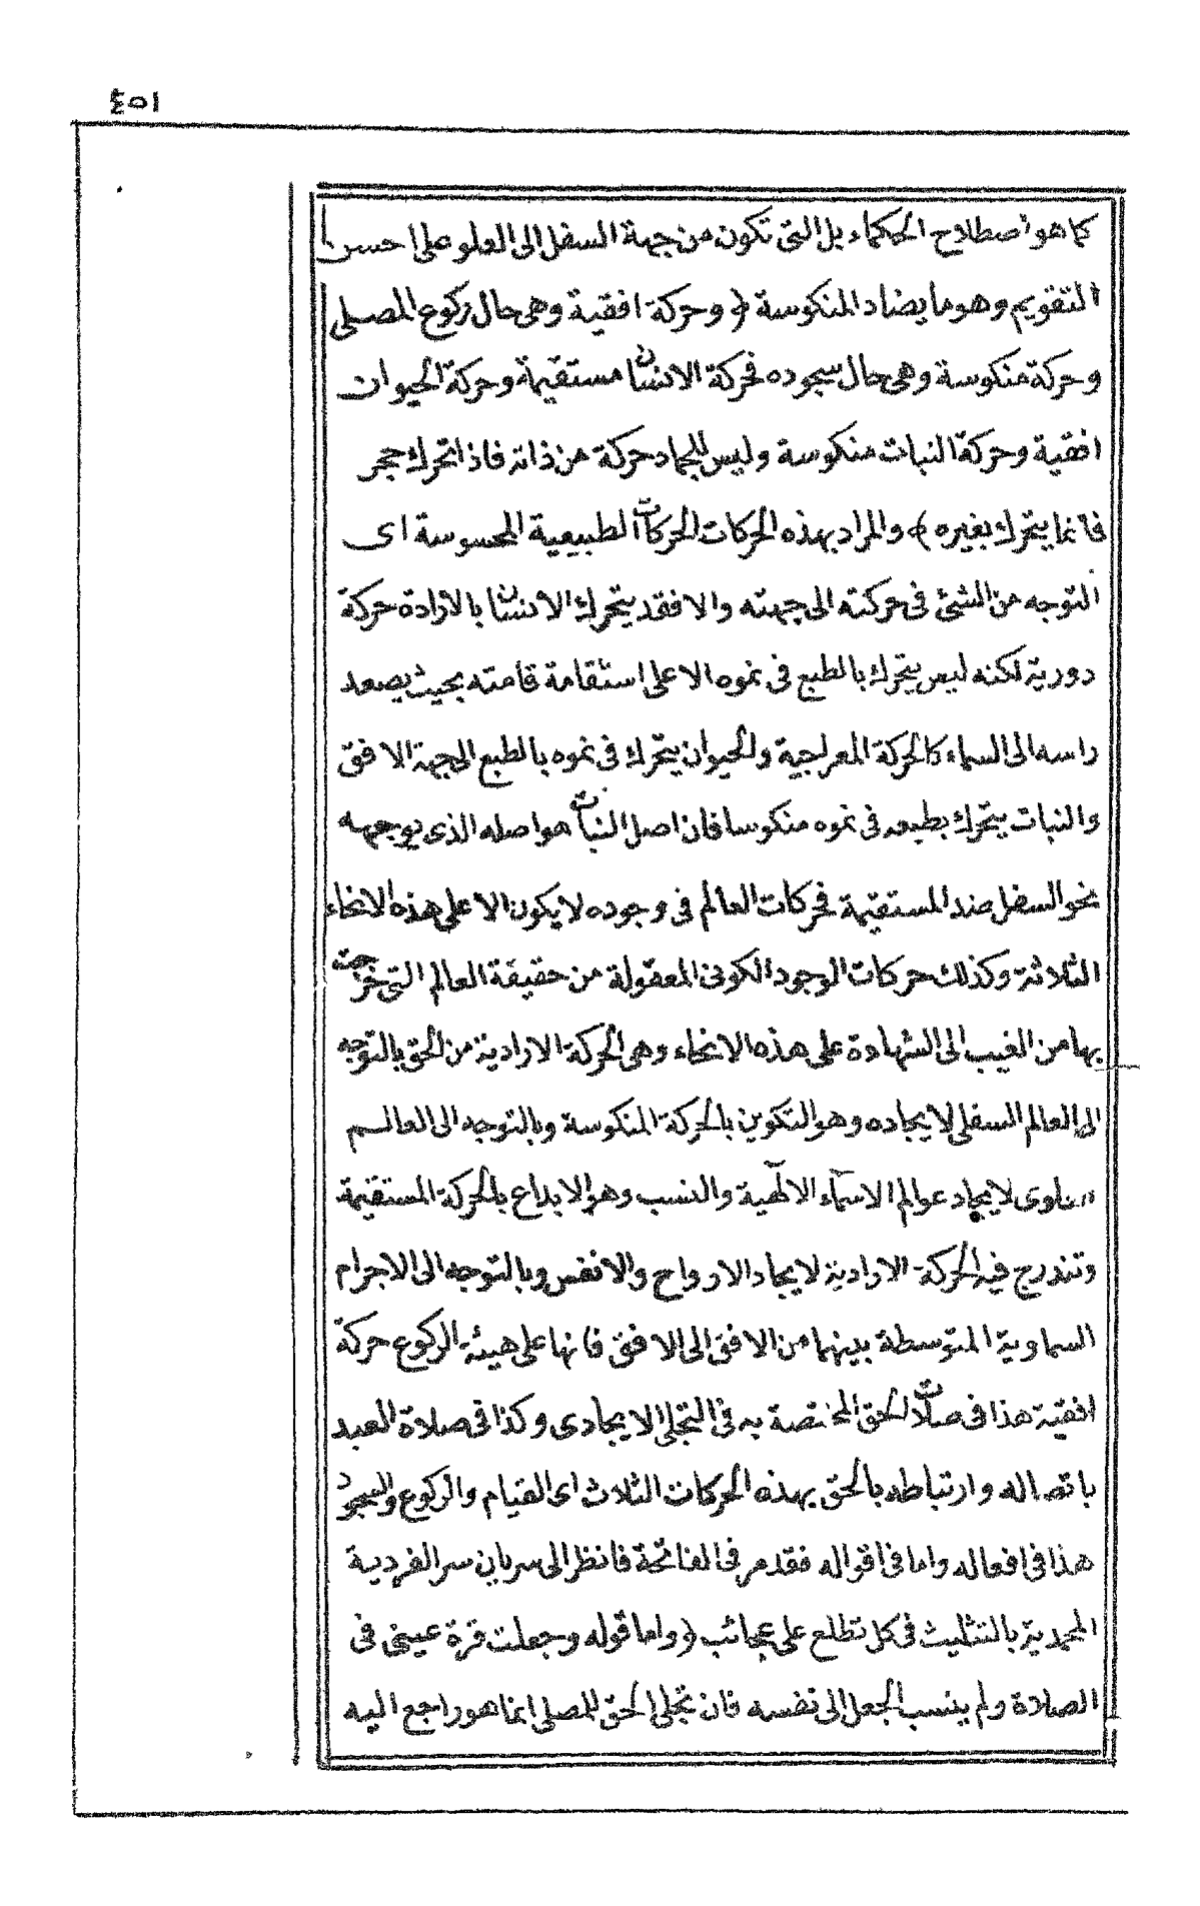 ٤٥١
كما هو اصطلاح الحكماء بل التى تكون من جهة السفل الى العلو على احسن
التقويم وهو ما يضاد المنكوسة ﴿ وحركة افقية وهى حال ركوع المصلى
وحركة منكوسة وهى حال سجوده فحركة الانسان مستقيمة وحركة الحيوان
افقية وحركة النبات منكوسة وليس للجماد حركة من ذاته فاذا تحرك حجر
فانما يتحرك بغيره ﴾ والمراد بهذه الحركات الحركات الطبيعية المحسوسة اى
التوجه من الشئ فى حركته الى جهته والا فقد يتحرك الانسان بالارادة حركة
دورية لكنه ليس يتحرك بالطبع فى نموه الا على استقامة قامته بحيث يصعد
راسه الى السماء كالحركة المعراجية والحيوان يتحرك فى نموه بالطبع الى جهة الافق
والنبات يتحرك بطبعه فى نموه منكوسا فان اصل النبات هو اصله الذى يوجهه
نحو السفل ضد المستقيمة فحركات العالم فى وجوده لا يكون الا على هذه الانحاء
الثلاثة وكذلك حركات الوجود الكونى المعقولة من حقيقة العالم التى خرجت
بها من الغيب الى الشهادة على هذه الانحاء وهى الحركة الارادية من الحق بالتوجه
الى العالم السفلى لايجاده وهو التكوين بالحركة المنكوسة وبالتوجه الى العالم
لايجاد عوالم الاسماء الالهية والنسب وهو الابداع بالحركة المستقيمة
وتندرج فيه الحركة الارادية لايجاد الارواح والانفس وبالتوجه الى الاجرام
السماوية المتوسطة بينهما من الافق الى الافق فانها على هيئة الركوع حركة
افقية هذا فى صلات الحق المختصة به فى التجلى الايجادى وكذا فى صلاة العبد
باتصاله وارتباطه بالحق بهذه الحركات الثلاث اى القيام والركوع والسجود
هذا فى افعاله واما فى اقواله فقد مر فى الفاتحة فانظر الى سريان سر الفردية
المحمدية بالتثليث فى كل تطلع على عجائب ﴿ واما قوله وجعلت قرة عينى فى
الصلاة ولم ينسب الجعل الى نفسه فان تجلى الحق للمصلى انما هو راجع اليه